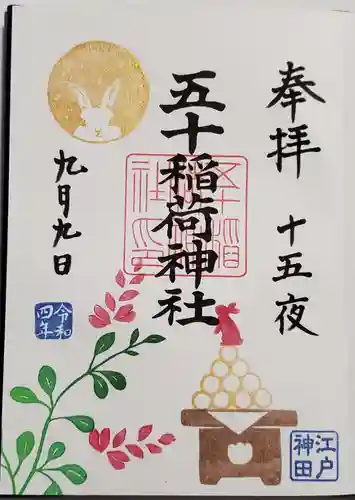 奉拝
十五夜
五十稲荷神社
五十稲荷神社印
九月九日
令和四年
江戸神田